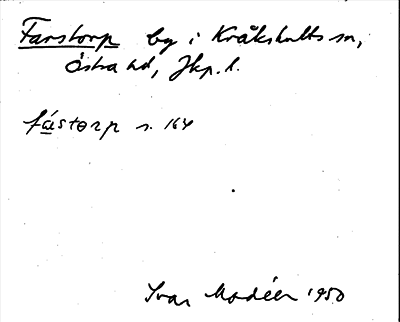 Farstorp by i Kråkshults sn,
Östra hd, Jkp. l.
fástorp s. 164
Ivar Modéer 1950